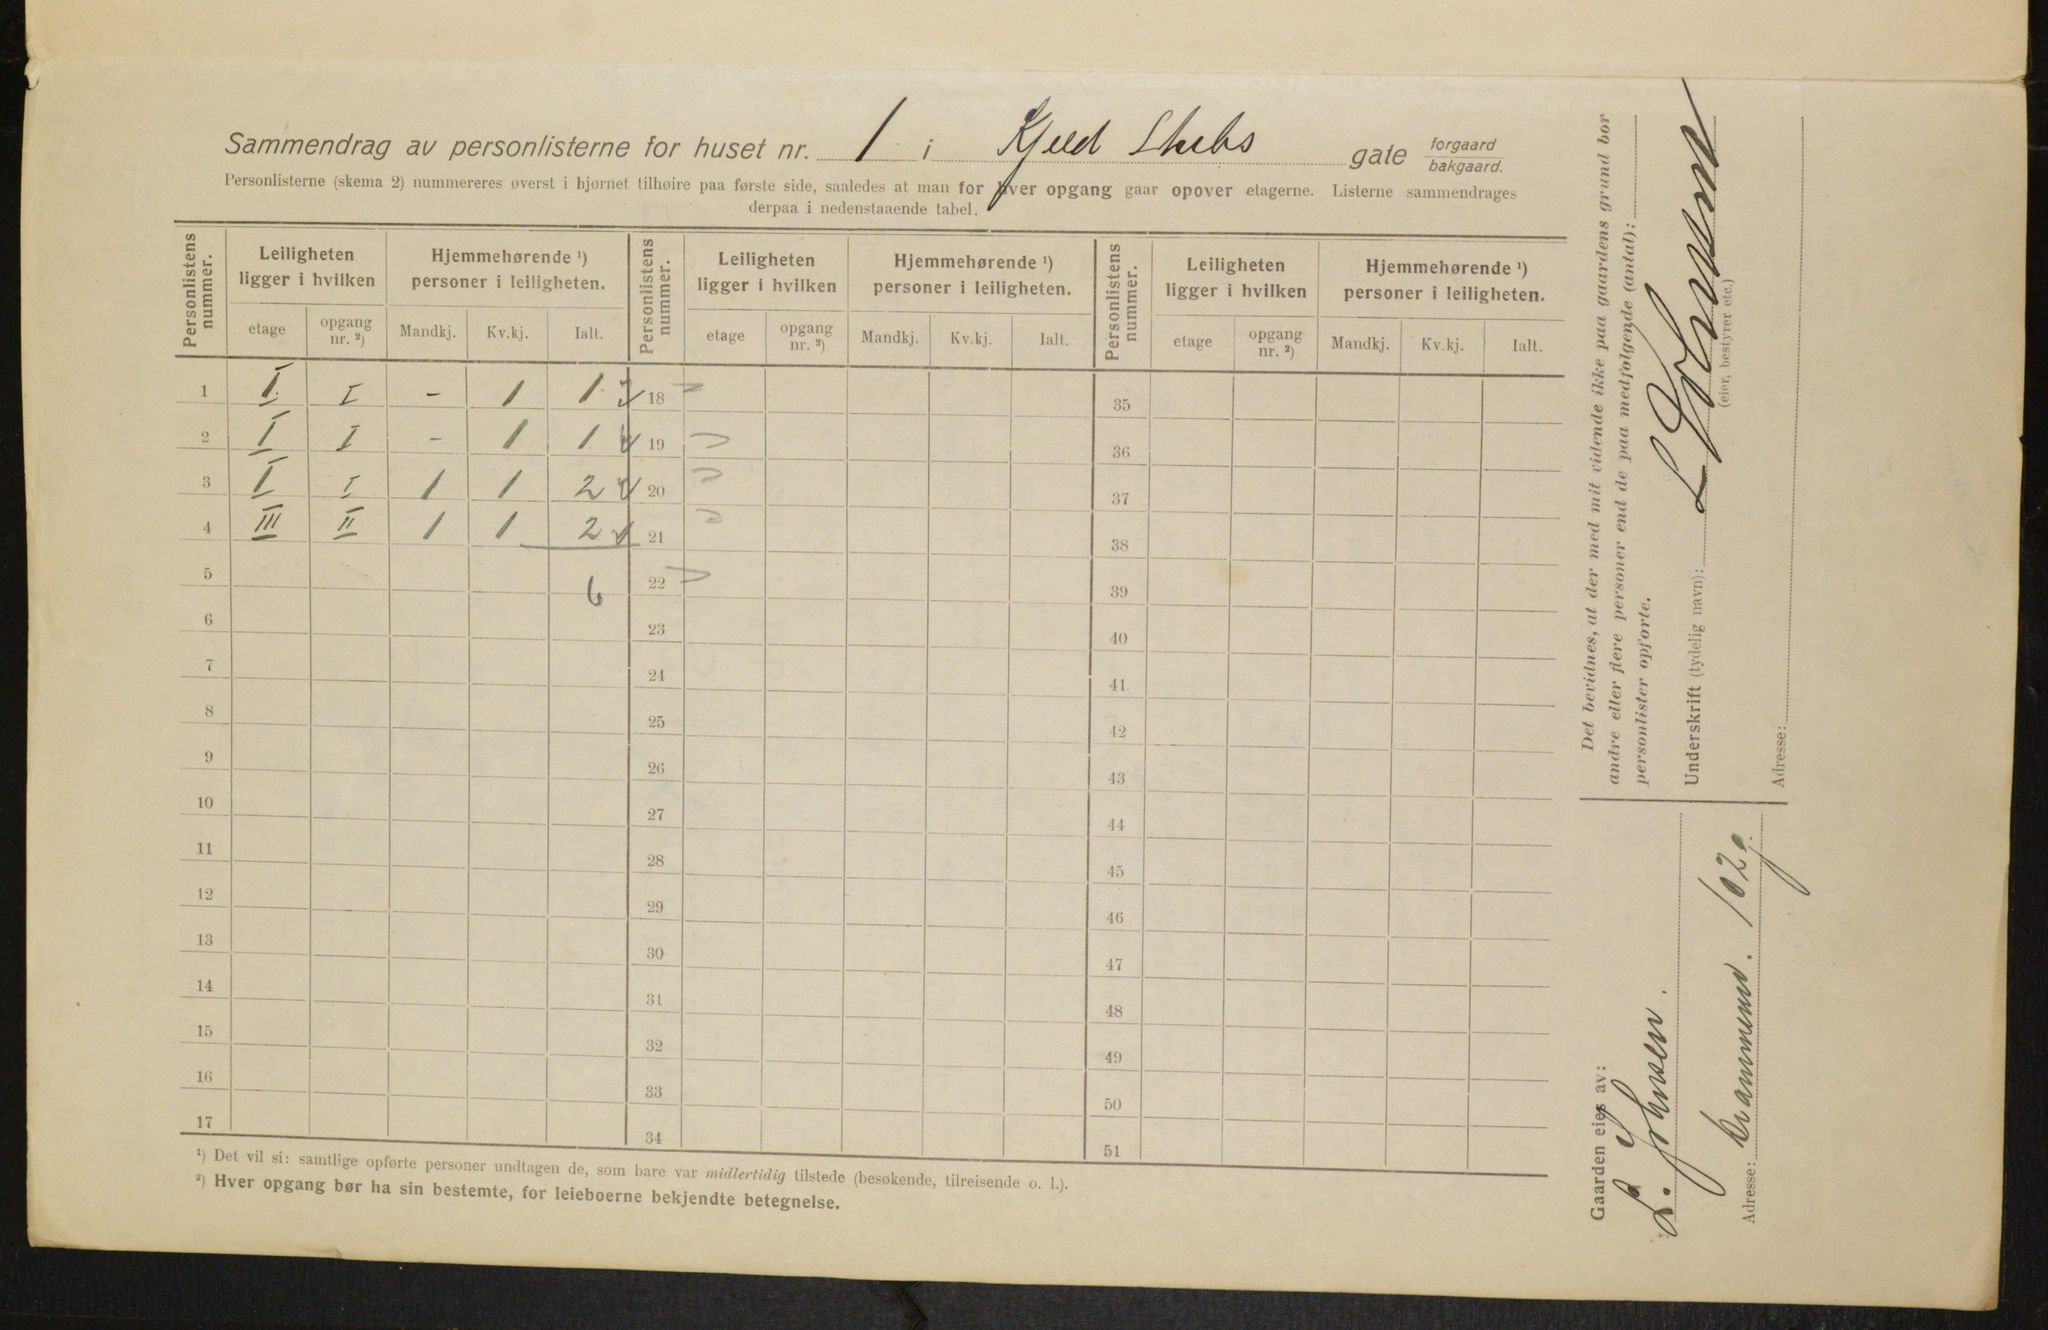 Sammendrag av personlisterne for huset nr. 1 i Kjeld Stubs gate forgaard
bakgaard.
Personlisterne (skema 2) nummereres øverst i hjørnet tilhøire paa første side, saaledes at man for hver opgang gaar opover etagerne. Listerne sammendrages
derpaa i nedenstaaende tabel.
Personlistens nummer. Leiligheten ligger i hvilken Hjemmehørende ¹) personer i leiligheten. Personlistens nummer. Leiligheten ligger i hvilken Hjemmehørende ¹) personer i leiligheten. Personlistens nummer. Leiligheten ligger i hvilken Hjemmehørende ¹) personer i leiligheten.
etage opgang nr. ²) Mandkj. Kv.kj. Ialt. etage opgang nr. ²) Mandkj. Kv.kj. Ialt. etage opgang nr. ²) Mandkj. Kv.kj. Ialt.
1 I I - 1 1 18 35
2 I I - 1 1 19 36
3 I I 1 1 2 20 37
4 III II 1 1 2 21 38
5 6 22 39
6 23 40
7 24 41
8 25 42
9 26 43
10 27 44
11 28 45
12 29 46
13 30 47
14 31 48
15 32 49
16 33 50
17 34 51
¹) Det vil si: samtlige opførte personer undtagen de, som bare var midlertidig tilstede (besøkende, tilreisende o. l.).
²) Hver opgang bør ha sin bestemte, for leieboerne bekjendte betegnelse.
Gaarden eies av:
L. Johnsen.
Adresse: 102
Det bevidnes, at der med mit vidende ikke paa gaardens grund bor
andre eller flere personer end de paa medfølgende (antal):
personlister opførte.
Underskrift (tydelig navn): L Johnsen
(eier, bestyrer etc.)
Adresse: